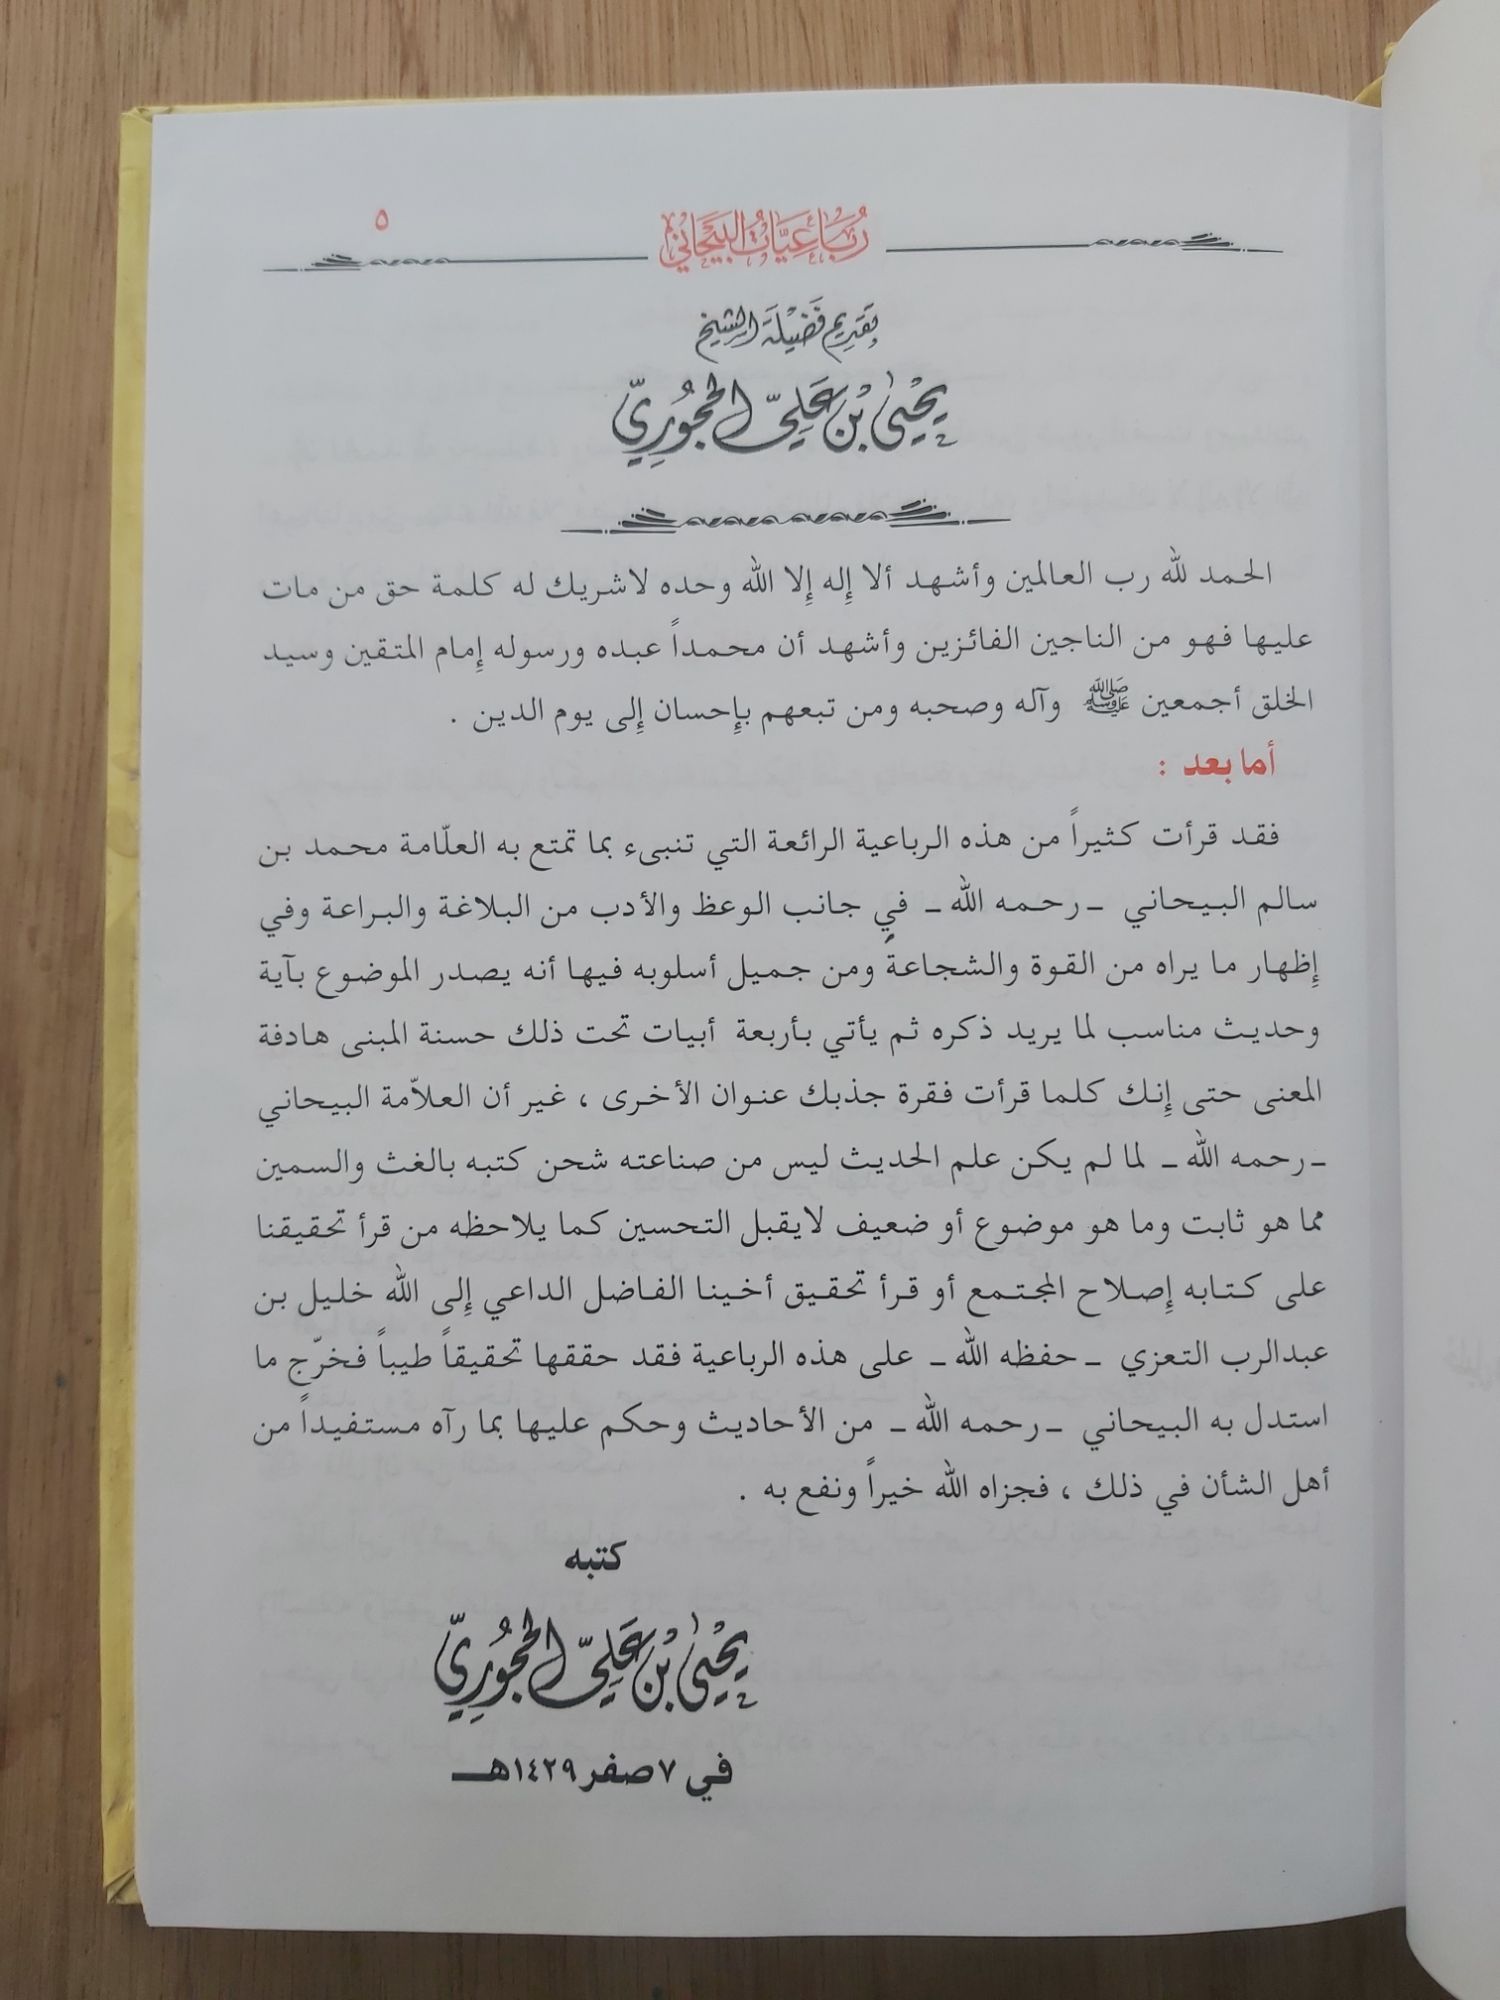 ٥
رُبَاعِيَّاتُ البَيْحَانِي
تقديم فَضِيْلَة الشيخ
يَحْيَى بْن عَلِيّ الحَجُورِيّ
الحمد لله رب العالمين وأشهد ألا إله إلا الله وحده لاشريك له كلمة حق من مات
عليها فهو من الناجين الفائزين وأشهد أن محمداً عبده ورسوله إمام المتقين وسيد
الخلق أجمعين ﷺ وآله وصحبه ومن تبعهم بإحسان إلى يوم الدين .
أما بعد :
فقد قرأت كثيراً من هذه الرباعية الرائعة التي تنبىء بما تمتع به العلّامة محمد بن
سالم البيحاني ـ رحمه الله ـ في جانب الوعظ والأدب من البلاغة والبراعة وفي
إظهار ما يراه من القوة والشجاعة ومن جميل أسلوبه فيها أنه يصدر الموضوع بآية
وحديث مناسب لما يريد ذكره ثم يأتي بأربعة أبيات تحت ذلك حسنة المبنى هادفة
المعنى حتى إنك كلما قرأت فقرة جذبك عنوان الأخرى ، غير أن العلاّمة البيحاني
ـ رحمه الله ـ لما لم يكن علم الحديث ليس من صناعته شحن كتبه بالغث والسمين
مما هو ثابت وما هو موضوع أو ضعيف لايقبل التحسين كما يلاحظه من قرأ تحقيقنا
على كتابه إصلاح المجتمع أو قرأ تحقيق أخينا الفاضل الداعي إلى الله خليل بن
عبدالرب التعزي ـ حفظه الله ـ على هذه الرباعية فقد حققها تحقيقاً طيباً فخرّج ما
استدل به البيحاني ـ رحمه الله ـ من الأحاديث وحكم عليها بما رآه مستفيداً من
أهل الشأن في ذلك ، فجزاه الله خيراً ونفع به .
كتبه
يَحْيَى بْن عَلِيّ الحَجُورِيّ
في ٧ صفر ١٤٢٩هـ